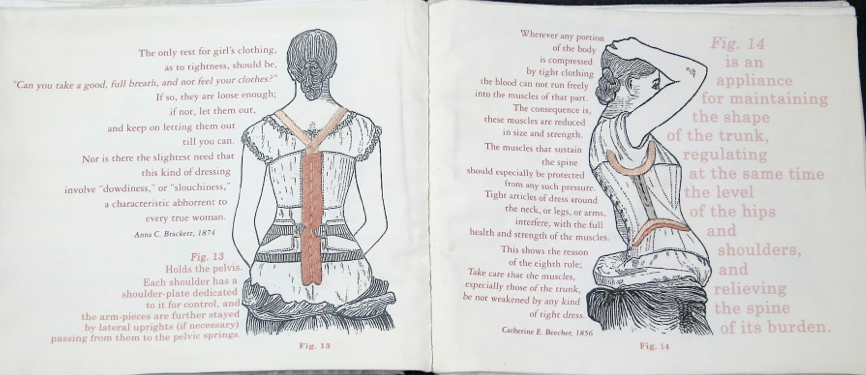 The only test for girl's clothing,
as to tightness, should be,
"Can you take a good, full breath, and not feel your clothes?"
If so, they are loose enough;
if not, let them out,
and keep on letting them out
till you can.
Nor is there the slightest need that
this kind of dressing
involve "dowdiness," or "slouchiness,"
a characteristic abhorrent to
every true woman.
Anna C. Brackett, 1874
Fig. 13
Holds the pelvis.
Each shoulder has a
shoulder-plate dedicated
to it for control, and
the arm-pieces are further stayed
by lateral uprights (if necessary)
passing from them to the pelvic springs.
Fig. 13
Wherever any portion
of the body
is compressed
by tight clothing
the blood can not run freely
into the muscles of that part.
The consequence is,
these muscles are reduced
in size and strength.
The muscles that sustain
the spine
should especially be protected
from any such pressure.
Tight articles of dress around
the neck, or legs, or arms,
interfere, with the full
health and strength of the muscles.
This shows the reason
of the eighth rule;
Take care that the muscles,
especially those of the trunk,
be not weakened by any kind
of tight dress.
Catherine E. Beecher, 1856
Fig. 14
Fig. 14
is an
appliance
for maintaining
the shape
of the trunk,
regulating
at the same time
the level
of the hips
and
shoulders,
and
relieving
the spine
of its burden.